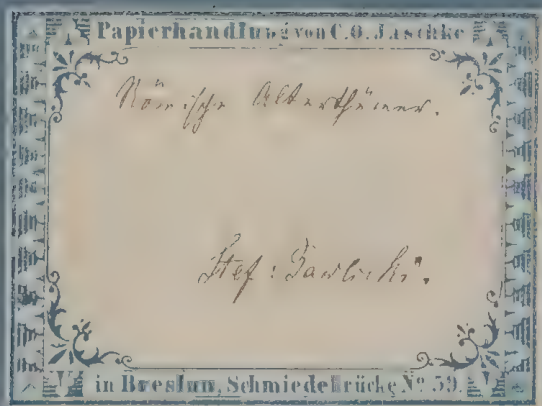 Papierhandlung von C. G. Jaschke
Römische Alterthümer.
Stef: Pawlicki.
in Breslau, Schmiedebrücke No. 59.